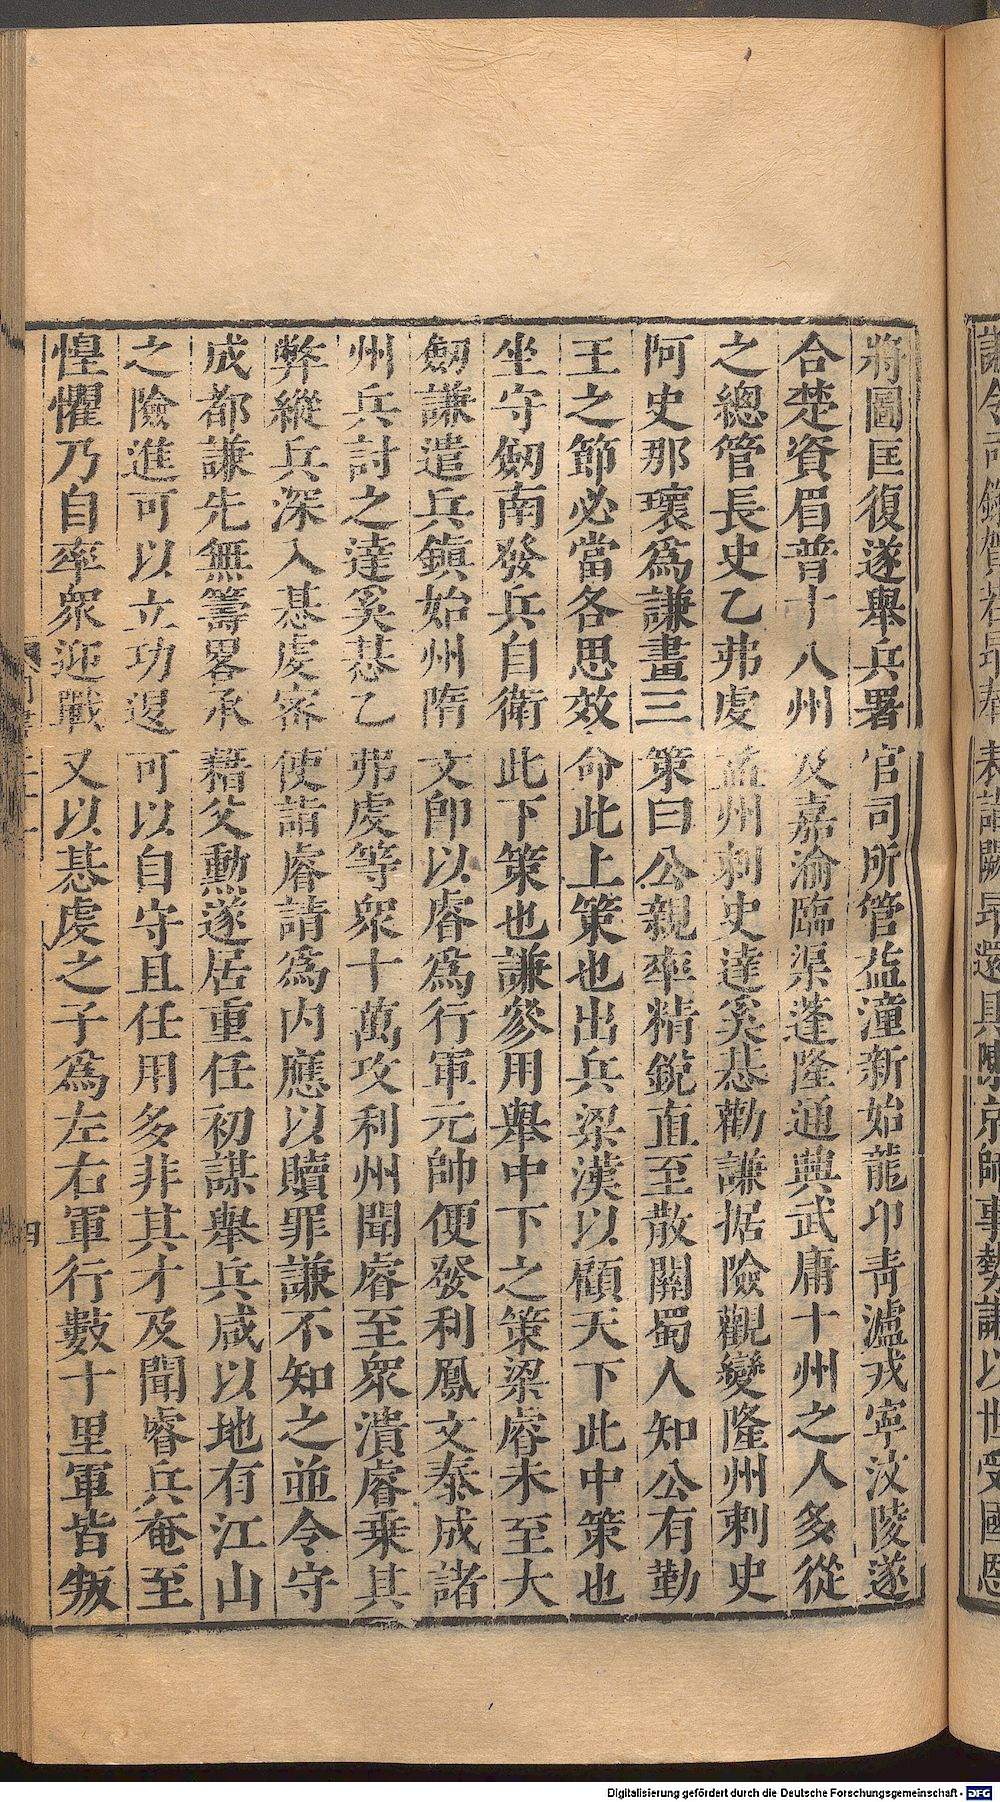 將圖匡復遂舉兵署官司所管益潼新始龍卭靑瀘戎寧汶陵遂
合楚資眉普十八州及嘉渝臨渠蓬隆通典武庸十州之人多從
之總管長史乙弗虔益州刺史達奚惎勸謙据險觀變隆州剌史
阿史那瓌爲謙畫三策曰公親率精銳直至散關蜀人知公有勤
王之節必當各思效命此上策也出兵梁漢以顧天下此中策也
坐守劒南發兵自衛此下策也謙參用舉中下之策梁睿未至大
劒謙遣兵鎭始州隋文卽以睿爲行軍元帥便發利鳳文泰成諸
州兵討之達奚惎乙弗虔等衆十萬攻利州聞睿至衆潰睿乗其
弊縱兵深入惎虔密使詣睿請爲内應以贖罪謙不知之並令守
成都謙先無籌畧承藉父勲遂居重任初謀舉兵咸以地有江山
之險進可以立功退可以自守且任用多非其才及聞睿兵奄至
惶懼乃自率衆迎戰又以惎虔之子爲左右軍行數十里軍皆叛
四
Digitalisierung gefördert durch die Deutsche Forschungsgemeinschaft - DFG